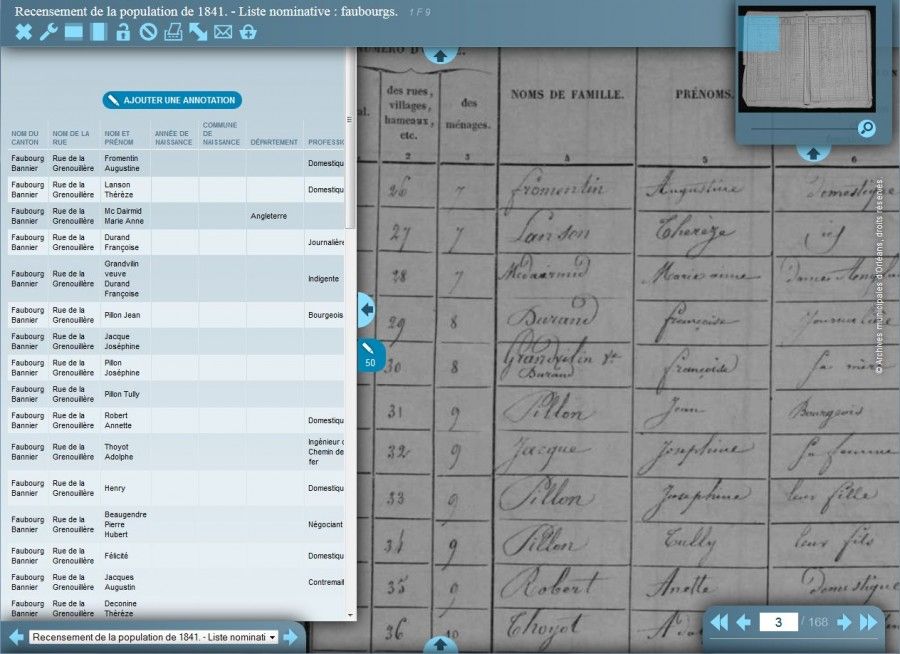 Recensement de la population de 1841. - Liste nominative : faubourgs. 1 F 9
AJOUTER UNE ANNOTATION
NOM DU CANTON NOM DE LA RUE NOM ET PRÉNOM ANNÉE DE NAISSANCE COMMUNE DE NAISSANCE DÉPARTEMENT PROFESSIO
Faubourg Bannier Rue de la Grenouillère Fromentin Augustine Domestiqu
Faubourg Bannier Rue de la Grenouillère Lanson Thérèze Domestiqu
Faubourg Bannier Rue de la Grenouillère Mc Dairmid Marie Anne Angleterre
Faubourg Bannier Rue de la Grenouillère Durand Françoise Journalière
Faubourg Bannier Rue de la Grenouillère Grandvilin veuve Durand Françoise Indigente
Faubourg Bannier Rue de la Grenouillère Pillon Jean Bourgeois
Faubourg Bannier Rue de la Grenouillère Jacque Joséphine
Faubourg Bannier Rue de la Grenouillère Pillon Joséphine
Faubourg Bannier Rue de la Grenouillère Pillon Tully
Faubourg Bannier Rue de la Grenouillère Robert Annette Domestiqu
Faubourg Bannier Rue de la Grenouillère Thoyot Adolphe Ingénieur Chemin de fer
Faubourg Bannier Rue de la Grenouillère Henry Domestiqu
Faubourg Bannier Rue de la Grenouillère Beaugendre Pierre Hubert Négociant
Faubourg Bannier Rue de la Grenouillère Félicité Domestiqu
Faubourg Bannier Rue de la Grenouillère Jacques Augustin Contremaî
Faubourg Bannier Rue de la Grenouillère Deconine Thérèze
Recensement de la population de 1841. - Liste nominati
50
des rues, villages, hameaux, etc. des ménages. NOMS DE FAMILLE. PRÉNOMS.
2 3 4 5 6
26 7 Fromentin Augustine Domestique
27 7 Lanson Thérèze
28 7 Mcdairmid Marie anne
29 8 Durand françoise
30 8 Grandvilin Ve Durand françoise Sa mère
31 9 Pillon Jean Bourgeois
32 9 Jacque Josephine Sa femme
33 9 Pillon Josephine leur fille
34 9 Pillon Tully leur fils
35 9 Robert Anette Domestique
36 10 Thoyot
© Archives municipales d'Orléans, droits réservés
3 / 168